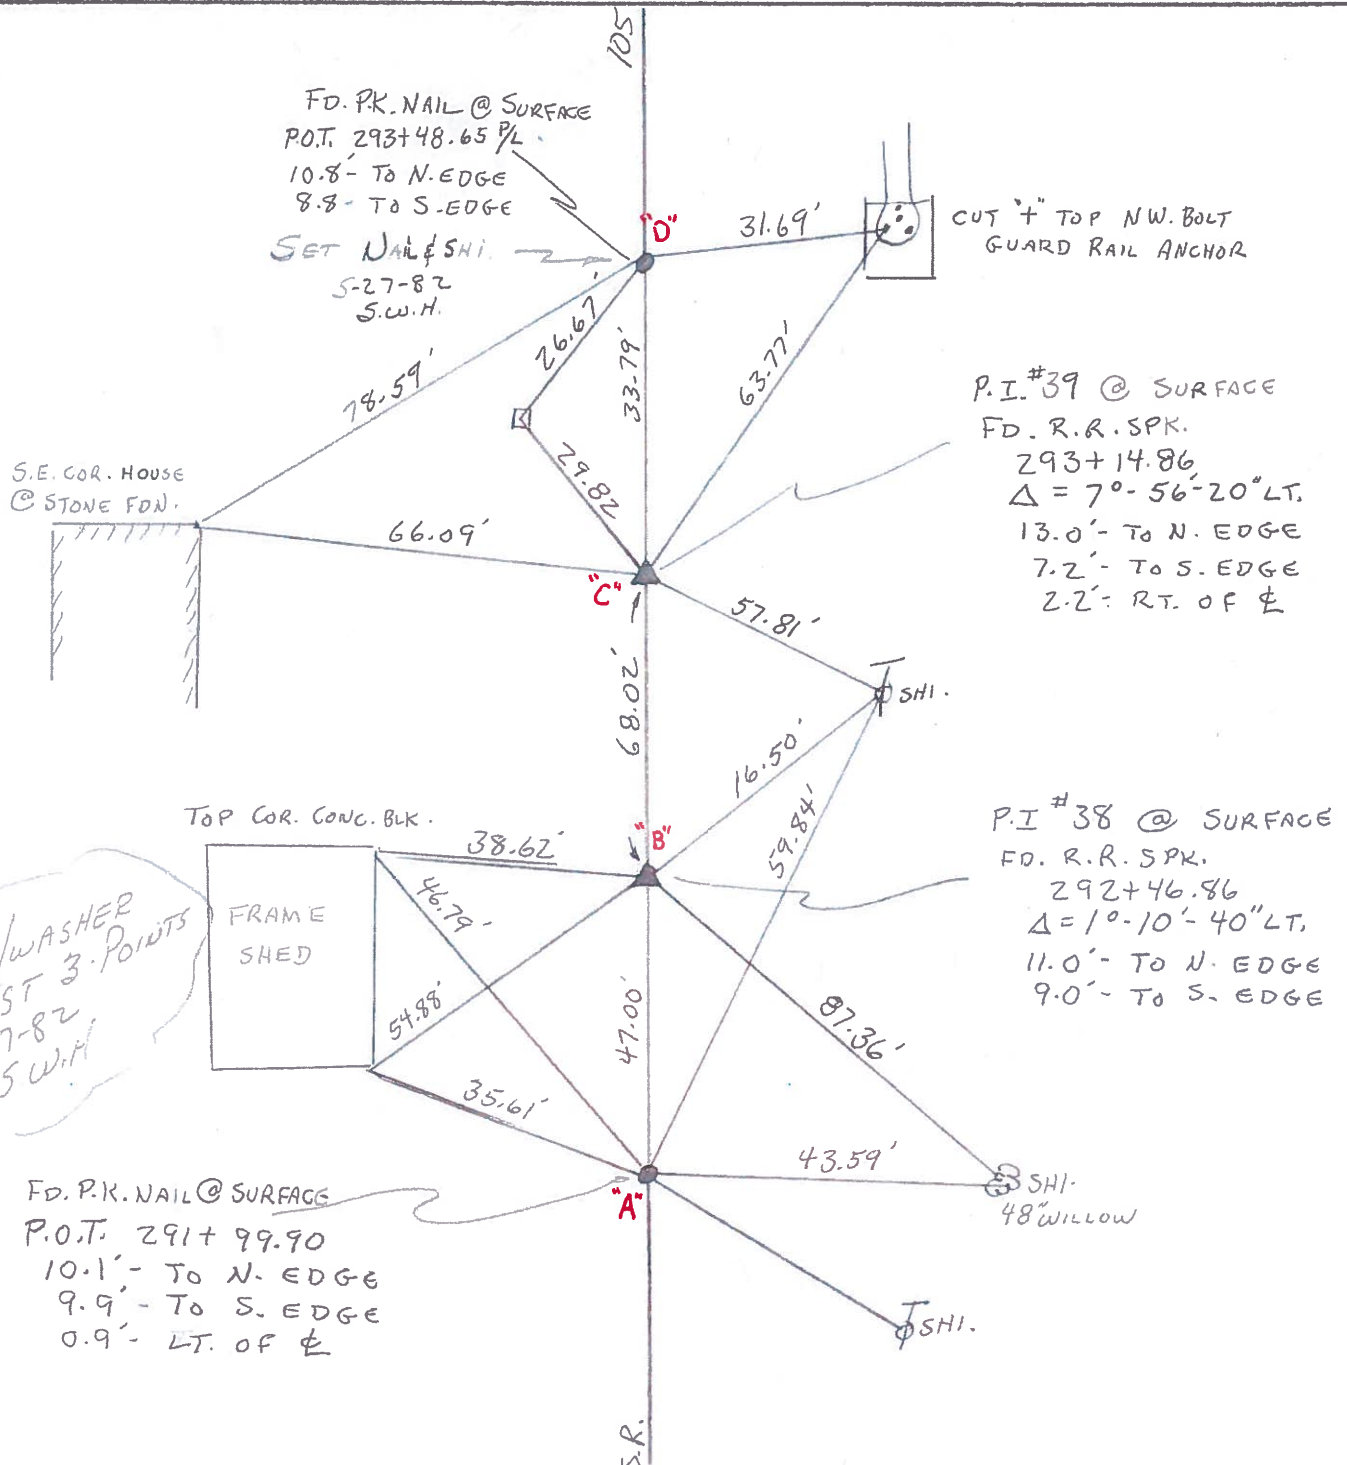 105
FD. P.K. NAIL @ SURFACE
P.O.T. 293+48.65 P/L
10.8'- TO N. EDGE
8.8- TO S. EDGE
SET NAIL & SHI.
5-27-82
S.W.H.
"D"
31.69'
CUT "+" TOP NW. BOLT
GUARD RAIL ANCHOR
26.67'
33.79'
63.77'
78.59'
29.82
P.I. #39 @ SURFACE
FD. R.R. SPK.
293+14.86
Δ = 7°-56'-20" LT.
13.0'- TO N. EDGE
7.2'- TO S. EDGE
2.2'- RT. OF ℄
S.E. COR. HOUSE
@ STONE FDN.
66.09'
"C"
57.81'
SHI.
68.02'
16.50'
59.84'
TOP COR. CONC. BLK.
38.62'
"B"
P.I #38 @ SURFACE
FD. R.R. SPK.
292+46.86
Δ = 1°-10'-40" LT.
11.0'- TO N. EDGE
9.0'- TO S. EDGE
FRAME
SHED
46.79'
54.88'
47.00'
87.36'
/WASHER
ST 3-POINTS
7-82
S.W.H
35.61'
43.59'
SHI.
48" WILLOW
"A"
FD. P.K. NAIL @ SURFACE
P.O.T. 291+99.90
10.1'- TO N. EDGE
9.9'- TO S. EDGE
0.9'- LT. OF ℄
SHI.
S.R.